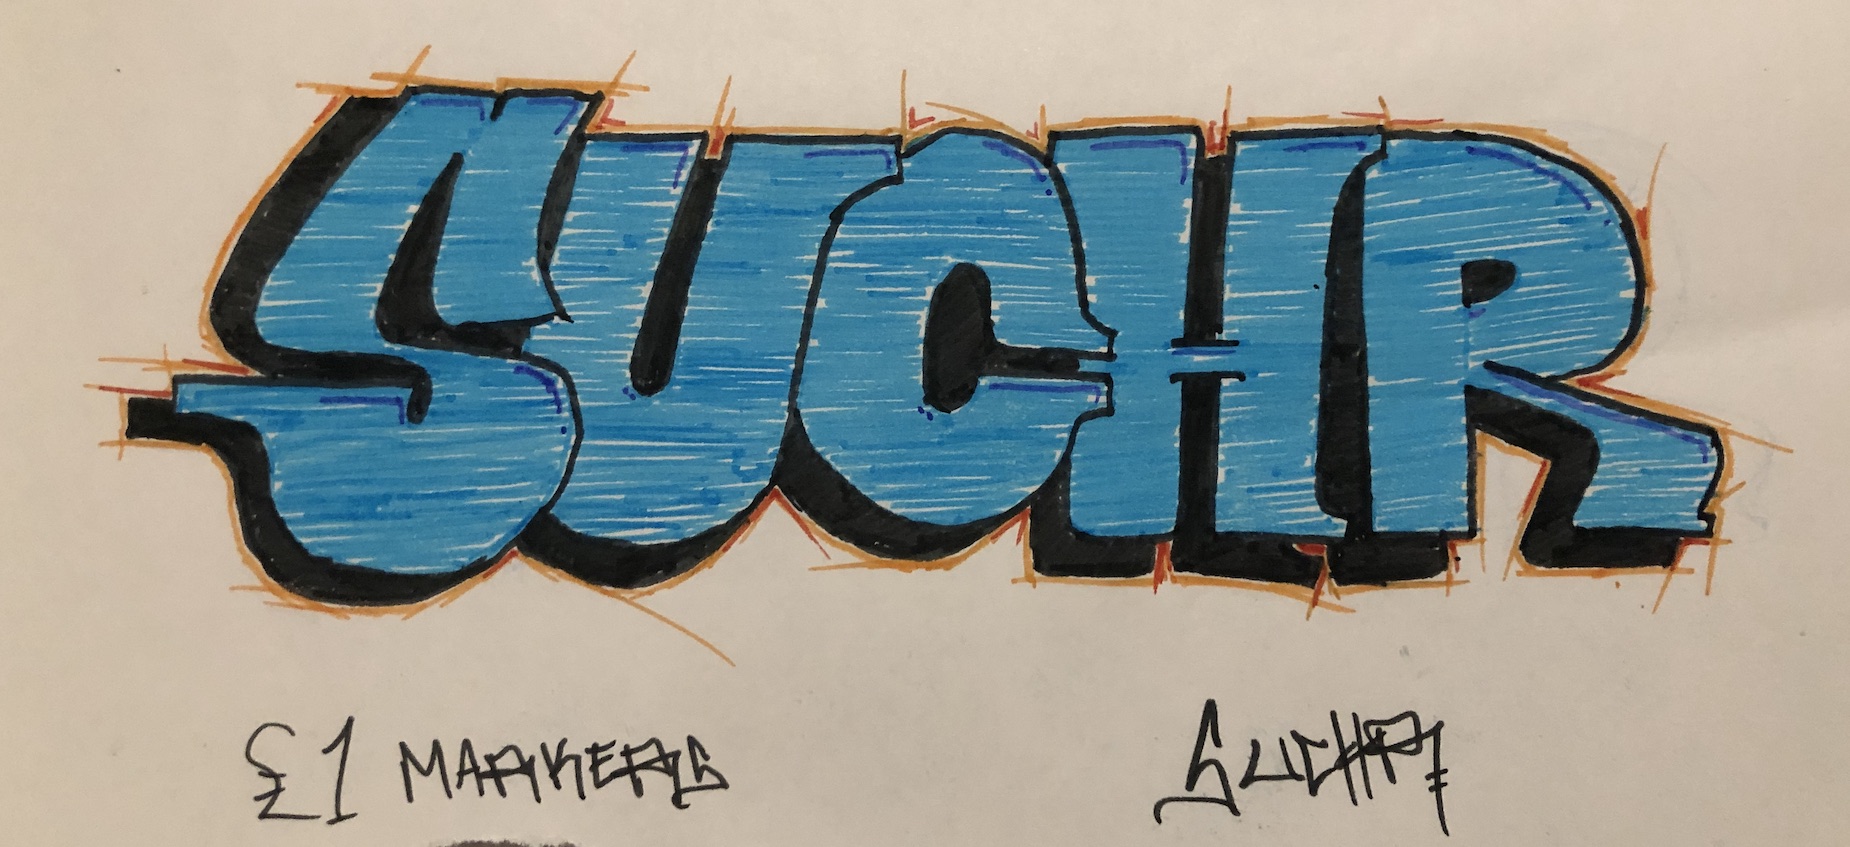 SUCHR
£1 MARKERS
SUCHR